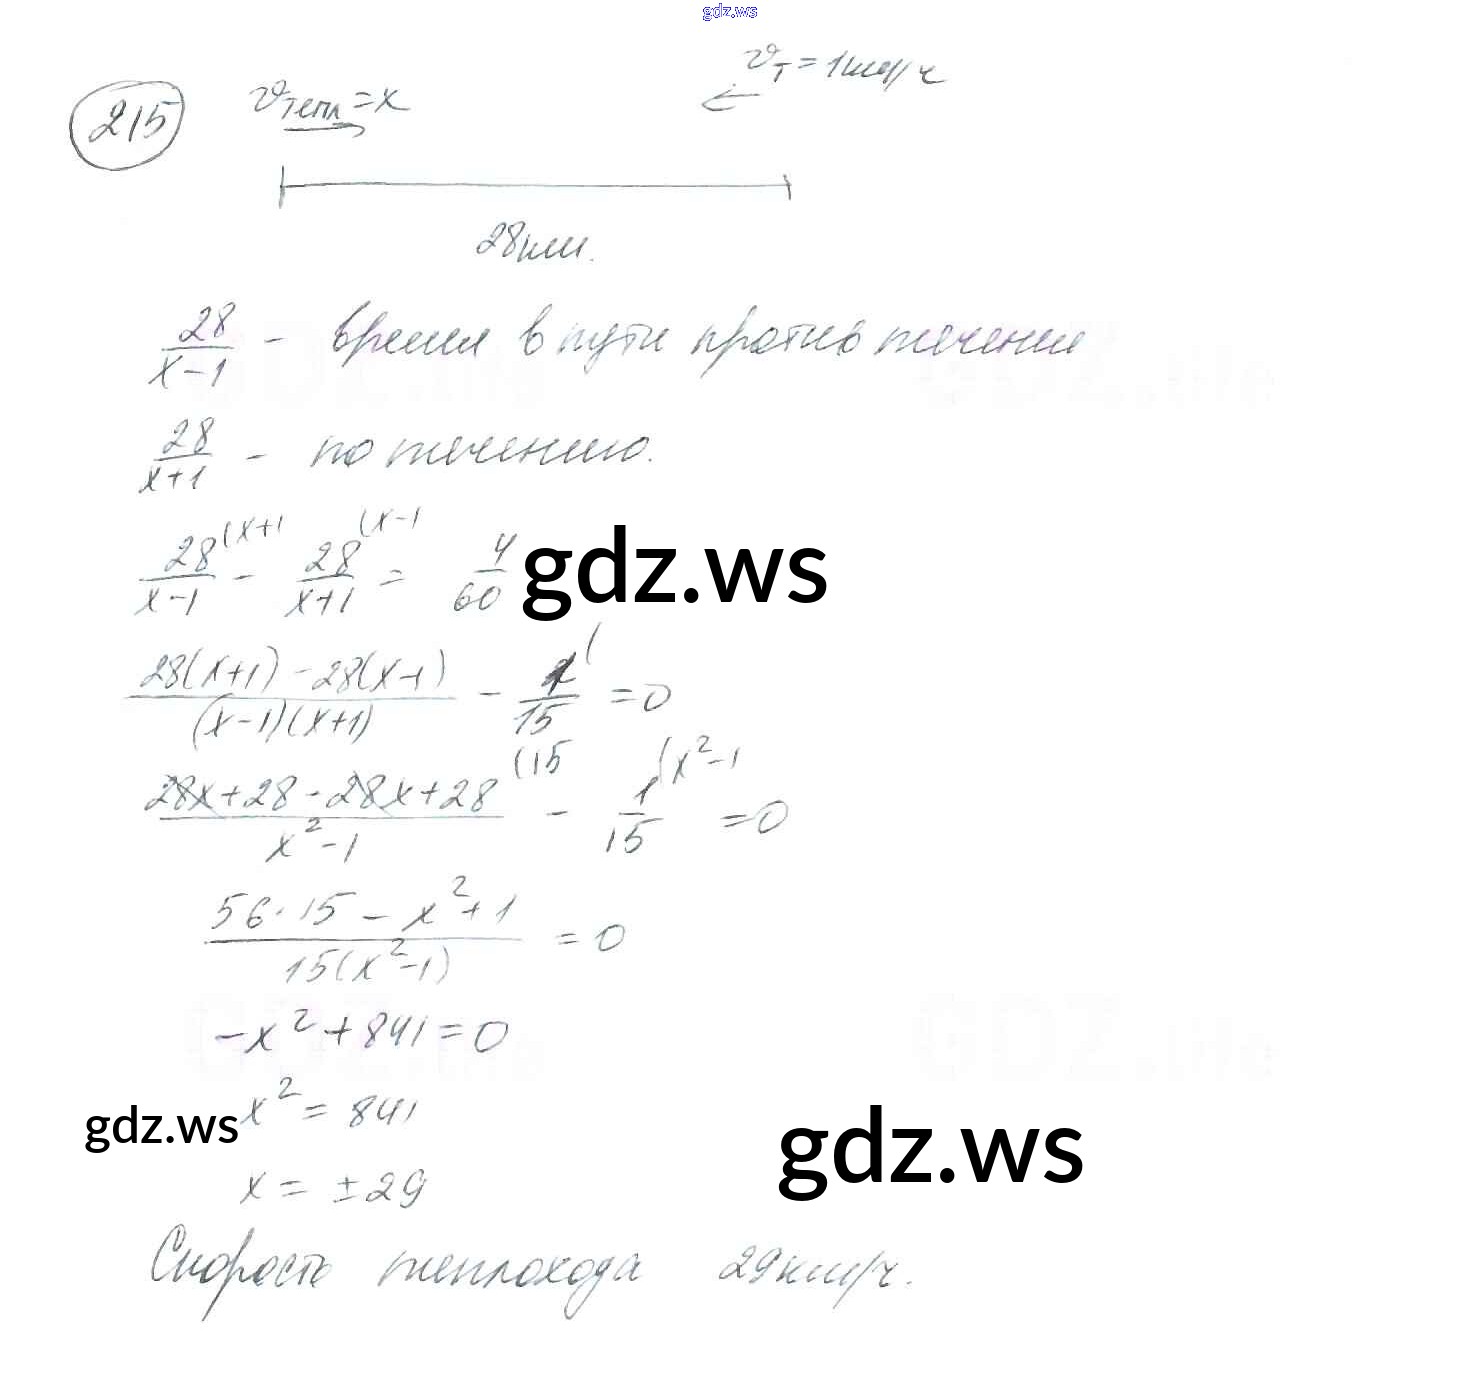 gdz.ws
215
v_тепл = x
v_т = 1 км/ч
28 км.
28/(x-1) - время в пути против течения
28/(x+1) - по течению.
28/(x-1) (x+1 - 28/(x+1) (x-1 = 4/60
gdz.ws
(28(x+1) - 28(x-1))/((x-1)(x+1)) - 1/15 = 0
(28x+28-28x+28)/(x²-1) (15 - 1/15 (x²-1 = 0
(56·15 - x²+1)/(15(x²-1)) = 0
-x²+841=0
x² = 841
gdz.ws
gdz.ws
x = ±29
Скорость теплохода 29 км/ч.